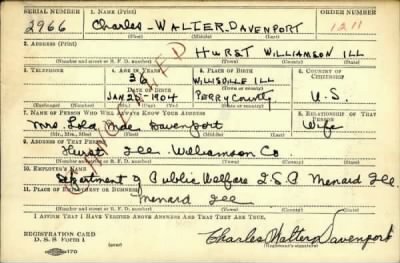 SERIAL NUMBER 1. NAME (Print) ORDER NUMBER
2966 Charles - WALTER - DAVENPORT 1211
(First) (Middle) (Last)
2. ADDRESS (Print)
HURST WILLIAMSON ILL
(Number and street or R. F. D. number) (Town) (County) (State)
3. TELEPHONE 4. AGE IN YEARS 5. PLACE OF BIRTH 6. COUNTRY OF CITIZENSHIP
36 WILLISVILLE ILL
(Town or county)
DATE OF BIRTH
JAN 25 - 1904 PERRY County U.S.
(Exchange) (Number) (Mo.) (Day) (Yr.) (State or country)
7. NAME OF PERSON WHO WILL ALWAYS KNOW YOUR ADDRESS 8. RELATIONSHIP OF THAT PERSON
Mrs Davenport Wife
(Mr., Mrs., Miss) (First) (Middle) (Last)
9. ADDRESS OF THAT PERSON
Hurst Ill Williamson Co.
(Number and street or R. F. D. number) (Town) (County) (State)
10. EMPLOYER'S NAME
Department of Public Welfare I.S.P. Menard Ill
11. PLACE OF EMPLOYMENT OR BUSINESS
Menard Ill
(Number and street or R. F. D. number) (Town) (County) (State)
I AFFIRM THAT I HAVE VERIFIED ABOVE ANSWERS AND THAT THEY ARE TRUE.
REGISTRATION CARD
D. S. S. Form 1 Charles Walter Davenport
(Registrant's signature)
CANCELLED